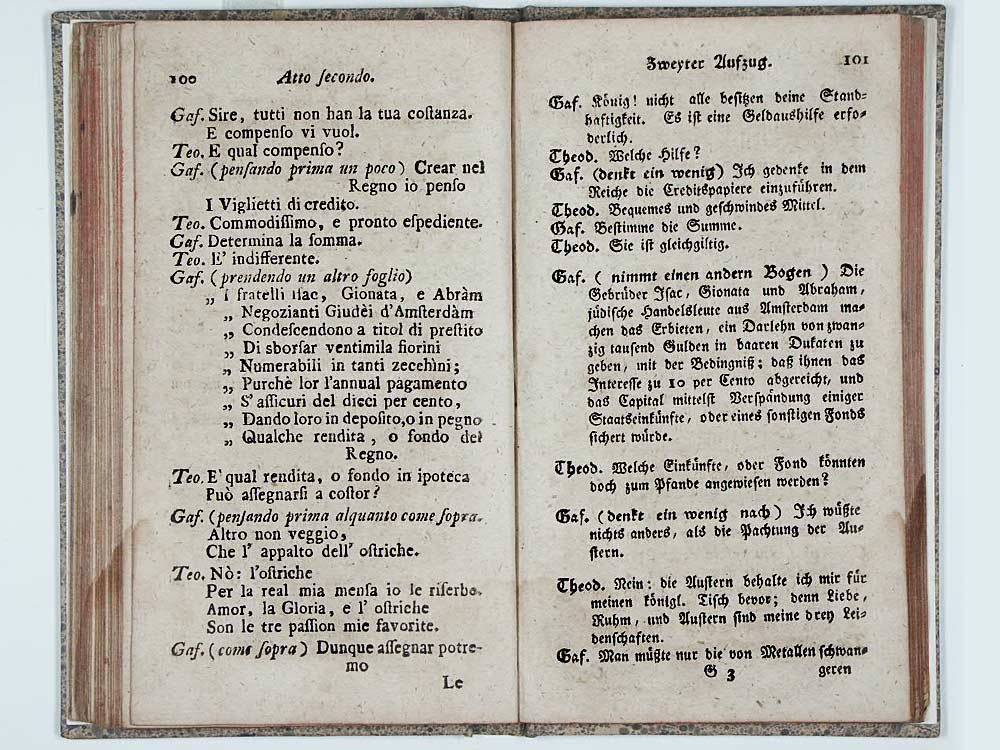 100 Atto ſecondo.
Gaf. Sire, tutti non han la tua coſtanza.
E compenſo vi vuol.
Teo. E qual compenſo?
Gaf. (penſando prima un poco) Crear nel
Regno io penſo
I Viglietti di credito.
Teo. Commodiſſimo, e pronto eſpediente.
Gaf. Determina la ſomma.
Teo. E' indifferente.
Gaf. (prendendo un altro foglio)
„ I fratelli Iſac, Gionata, e Abràm
„ Negozianti Giudèi d'Amſterdàm
„ Condeſcendono a titol di preſtito
„ Di sborſar ventimila fiorini
„ Numerabili in tanti zecchìni;
„ Purchè lor l'annual pagamento
„ S'aſſicuri del dieci per cento,
„ Dando loro in depoſito, o in pegno
„ Qualche rendita, o fondo del
Regno.
Teo. E' qual rendita, o fondo in ipoteca
Può aſſegnarſi a coſtor?
Gaf. (penſando prima alquanto come ſopra.
Altro non veggio,
Che l' appalto dell' oſtriche.
Teo. Nò: l'oſtriche
Per la real mia menſa io le riſerbo.
Amor, la Gloria, e l' oſtriche
Son le tre paſſion mie favorite.
Gaf. (come ſopra) Dunque aſſegnar potre-
mo
Le
Zweyter Aufzug. 101
Gaf. König! nicht alle beſitzen deine Stand-
haftigkeit. Es iſt eine Geldaushilfe erfo-
derlich.
Theod. Welche Hilfe?
Gaf. (denkt ein wenig) Ich gedenke in dem
Reiche die Creditspapiere einzuführen.
Theod. Bequemes und geſchwindes Mittel.
Gaf. Beſtimme die Summe.
Theod. Sie iſt gleichgiltig.
Gaf. ( nimmt einen andern Bogen ) Die
Gebrüder Iſac, Gionata und Abraham,
jüdiſche Handelsleute aus Amſterdam ma-
chen das Erbieten, ein Darlehn von zwan-
zig tauſend Gulden in baaren Dukaten zu
geben, mit der Bedingniß; daß ihnen das
Intereſſe zu 10 per Cento abgereicht, und
das Capital mittelſt Verpfändung einiger
Staatseinkünfte, oder eines ſonſtigen Fonds
ſichert würde.
Theod. Welche Einkünfte, oder Fond könnten
doch zum Pfande angewieſen werden?
Gaf. (denkt ein wenig nach) Ich wüßte
nichts anders, als die Pachtung der Au-
ſtern.
Theod. Nein: die Auſtern behalte ich mir für
meinen königl. Tiſch bevor; denn Liebe,
Ruhm, und Auſtern ſind meine drey Lei-
denſchaften.
Gaf. Man müßte nur die von Metallen ſchwan-
G 3 geren